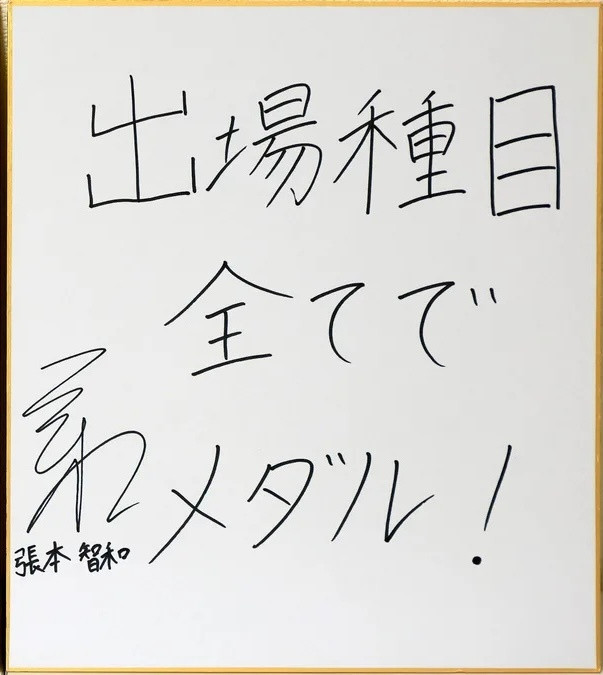 出場種目
全てで
メダル!
張本智和